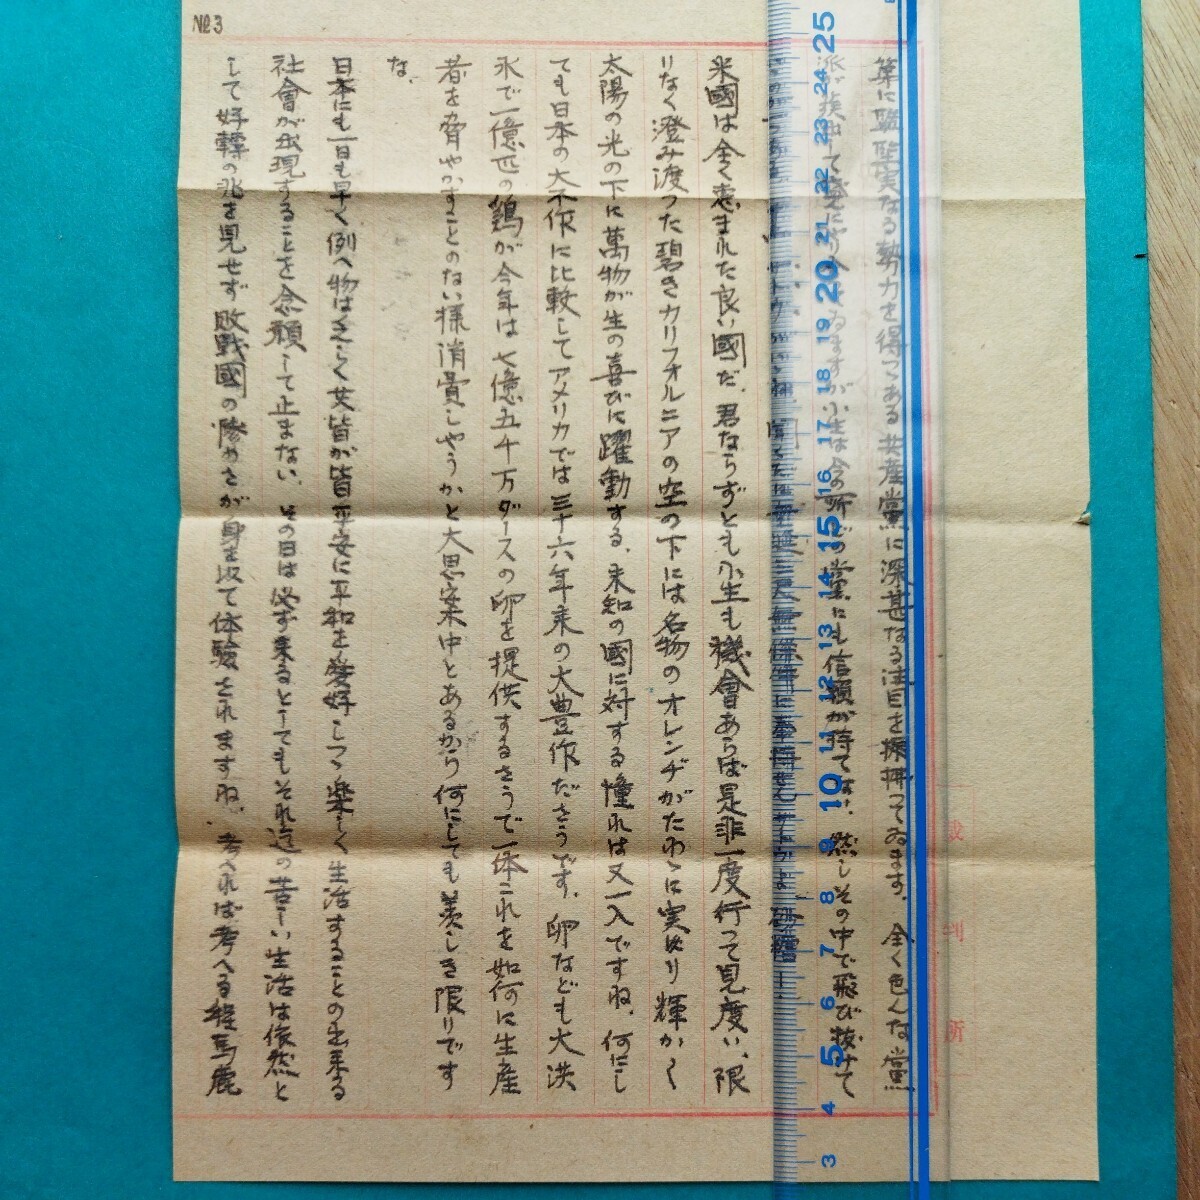 No.3
なる勢力を得つゝある共産黨に深甚なる注目を拂つてゐます。全く色んな黨
小生は今の所どの黨にも信頼が持てない、然しその中で飛び抜けて
米國は全く恵まれた良い國だ、君ならずとも小生も機會あらば是非一度行つて見度い、限
りなく澄み渡つた碧きカリフォルニアの空の下には名物のオレンヂがたわゝに実り輝かしく
太陽の光の下に萬物が生の喜びに躍動する、未知の國に対する憧れは又一入ですね、何にし
ても日本の大不作に比較してアメリカでは三十六年来の大豊作ださうです、卵なども大洪
水で一億匹の鶏が今年は七億五千万ダースの卵を提供するさうで一体これを如何に生産
者を脅やかすことのない様消費しやうかと大思案中とあるから何にしても羨しき限りです
な、
日本にも一日も早く、例へ物はなくも皆が皆平安に平和を愛好しつゝ楽しく生活することの出来る
社會が出現することを念願して止まない、その日は必ず来るとしてもそれ迄の苦しい生活は依然と
して好轉の兆を見せず敗戦國の惨めさが身を以て体験されますね、考へれば考へる程馬鹿
裁
判
所
25
24
23
22
21
20
19
18
17
16
15
14
13
12
11
10
9
8
7
6
5
4
3